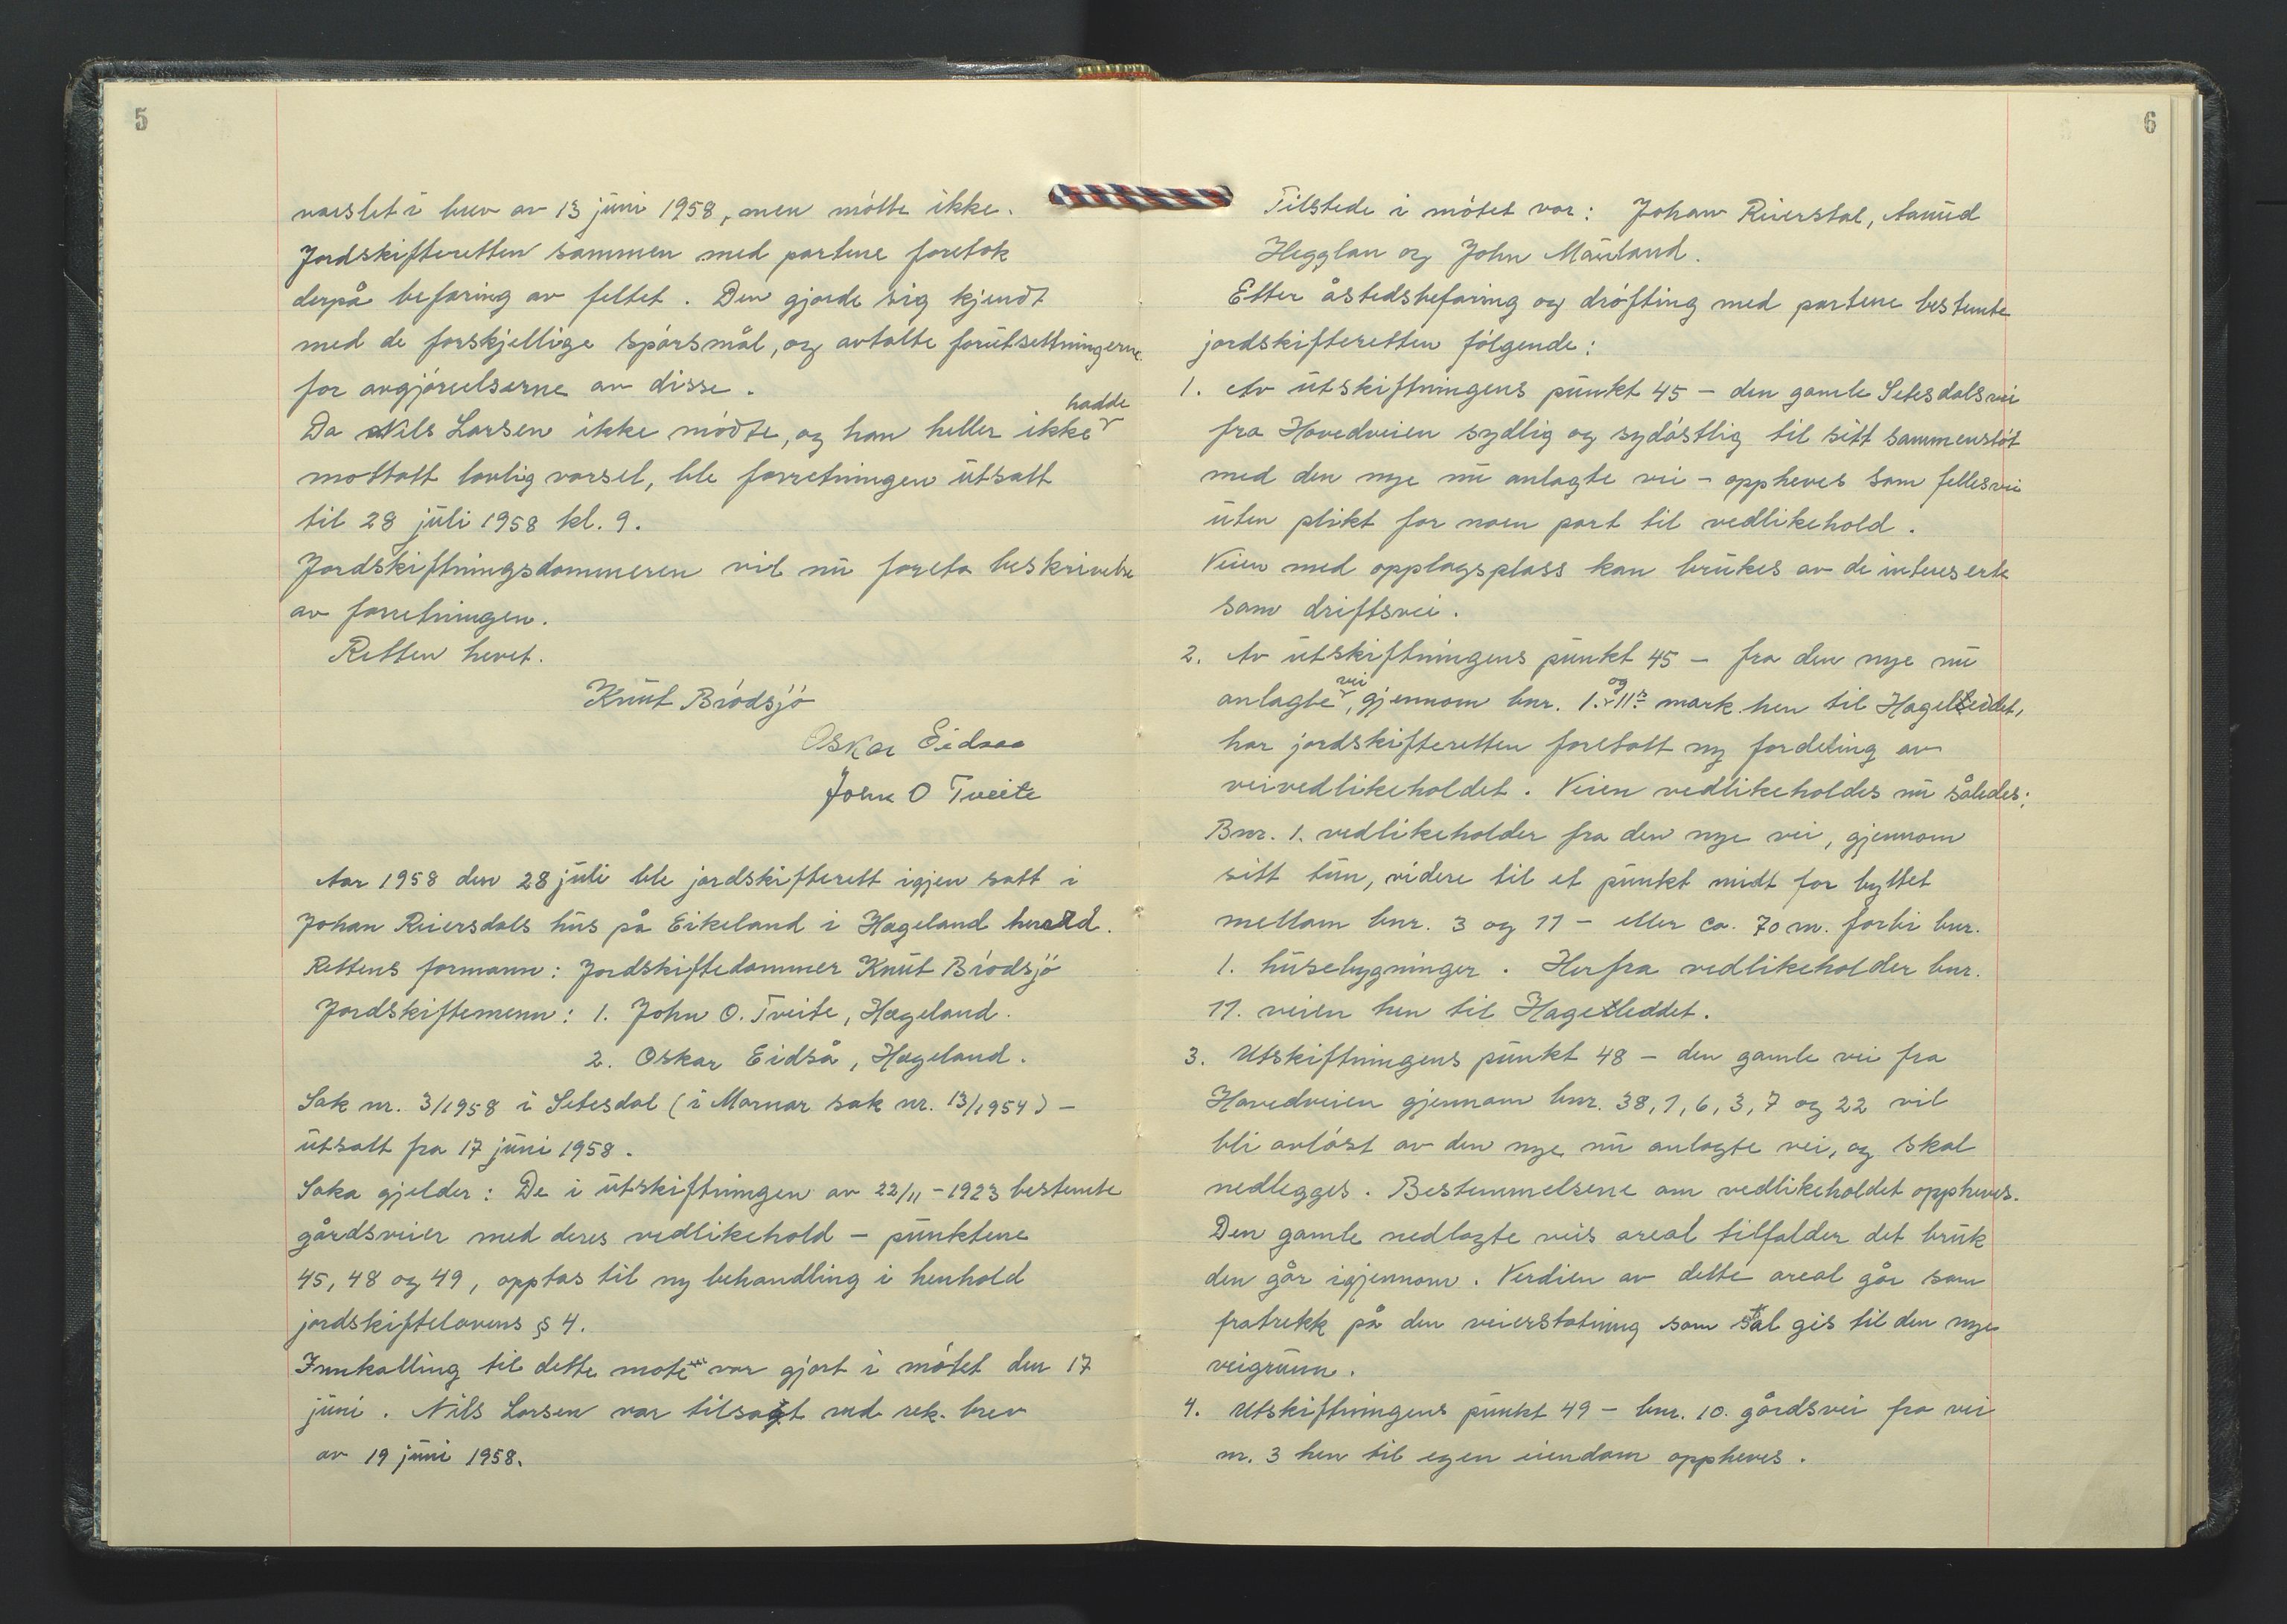 5
varslet i brev av 13 juni 1958, men møtte ikke.
Jordskifteretten sammen med partene foretok
derpå befaring av feltet. Den gjorde sig kjendt
med de forskjellige spørsmål, og avtalte forutsettningerne
for avgjørelserne av disse.
Da Nils Larsen ikke mødte, og han heller ikke hadde
mottatt lovlig varsel, ble forretningen utsatt
til 28 juli 1958 kl. 9.
Jordskiftningsdommeren vil nu foreta beskrivelse
av forretningen.
Retten hevet.
Knut Brødsjø
Oskar Eidsaa
John O Tveite
Aar 1958 den 28 juli ble jordskifterett igjen satt i
Johan Reiersdals hus på Eikeland i Hægeland herad.
Rettens formann: Jordskiftedommer Knut Brødsjø
Jordskiftemenn: 1. John O. Tveite, Hægeland.
2. Oskar Eidså, Hægeland.
Sak nr. 3/1958 i Setesdal (i Marnar sak nr. 13/1954) –
utsatt fra 17 juni 1958.
Saka gjelder: De i utskiftningen av 22/11 – 1923 bestemte
gårdsveier med deres vedlikehold – punktene
45, 48 og 49, opptas til ny behandling i henhold
jordskiftelovens § 4.
Innkalling til dette møte var gjort i møtet den 17
juni. Nils Larsen var tilsagt ved rek. brev
av 19 juni 1958.
6
Tilstede i møtet var: Johan Reierstal, Aamud
Hegglan og John Mauland.
Etter åstedsbefaring og drøfting med partene bestemte
jordskifteretten følgende:
1. Av utskiftningens punkt 45 – den gamle Setesdalsvei
fra Hovedveien sydlig og sydøstlig til sitt sammenstøt
med den nye nu anlagte vei – oppheves som fellesvei
uten plikt for noen part til vedlikehold.
Veien med opplagsplass kan brukes av de intereserte
som driftsvei.
2. Av utskiftningens punkt 45 – fra den nye nu
anlagte vei, gjennom bnr. 1. og 11s mark hen til Hageleddet,
har jordskifteretten foretatt ny fordeling av
veivedlikeholdet. Veien vedlikeholdes nu således:
Bnr. 1. vedlikeholder fra den nye vei, gjennom
sitt tun, videre til et punkt midt for byttet
mellom bnr. 3 og 11 – eller ca. 70 m. forbi bnr.
1. husebygninger. Herfra vedlikeholder bnr.
11. veien hen til Hageleddet.
3. Utskiftningens punkt 48 – den gamle vei fra
Hovedveien gjennom bnr. 38, 1, 6, 3, 7 og 22 vil
bli avløst av den nye nu anlagte vei, og skal
nedlegges. Bestemmelsene om vedlikeholdet oppheves.
Den gamle nedlagte veis areal tilfalder det bruk
den går igjennom. Verdien av dette areal går som
fratrekk på den veierstatning som skal gis til den nye
veigrunn.
4. Utskiftningens punkt 49 – bnr. 10. gårdsvei fra vei
nr. 3 hen til egen eiendom oppheves.